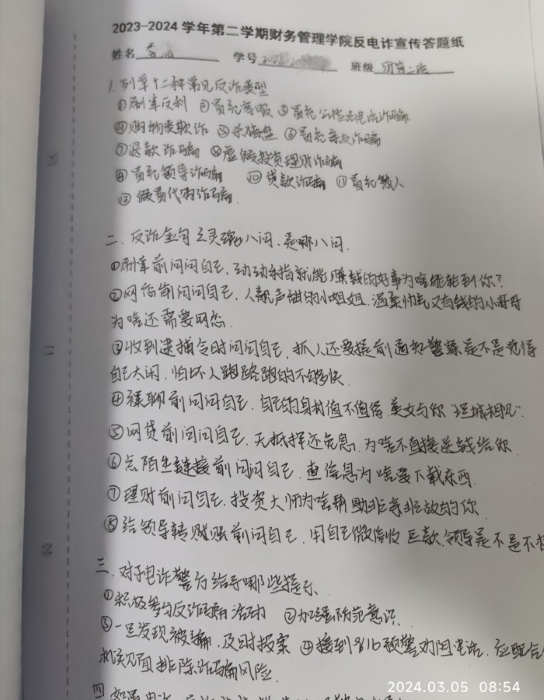 2023-2024 学年第二学期财务管理学院反电诈宣传答题纸
姓名 学号 班级
1. 列举十二种常见反诈类型
①刷单返利 ②冒充客服 ③冒充公检法电信诈骗
④购物类欺诈 ⑤杀猪盘 ⑥冒充亲友诈骗
⑦退款诈骗 ⑧虚假投资理财诈骗
⑨冒充领导诈骗 ⑩贷款诈骗 ⑪冒充熟人
诈骗
二、反诈金句之灵魂八问,是哪八问.
①刷单前问问自己,动动手指就能赚钱的好事为啥轮到你?
②网恋前问问自己,人靓声甜的小姐姐,温柔帅气又有钱的小哥哥
为啥还需要网恋.
③收到逮捕令时问问自己,抓人还要提前通知警察是不是觉得
自己太闲,怕坏人跑路跑的不够快.
④裸聊前问问自己,自己的身材值不值得美女与你"坦诚相见".
⑤网贷前问问自己,无抵押还免息,为啥不直接送钱给你
⑥点陌生链接前问问自己,查信息为啥要下载东西.
⑦理财前问问自己,投资大师为啥帮助非亲非故的你
⑧给领导转账前问自己,用自己微信收巨款,领导是不是不
三、对于电诈警方给予哪些提示.
①积极参与反诈 活动 ②加强防范意识.
③一旦发现被骗,及时报案 ④接到 预警劝阻电话,应配合
见面排除诈骗风险.
四
2024.03.05 08:54